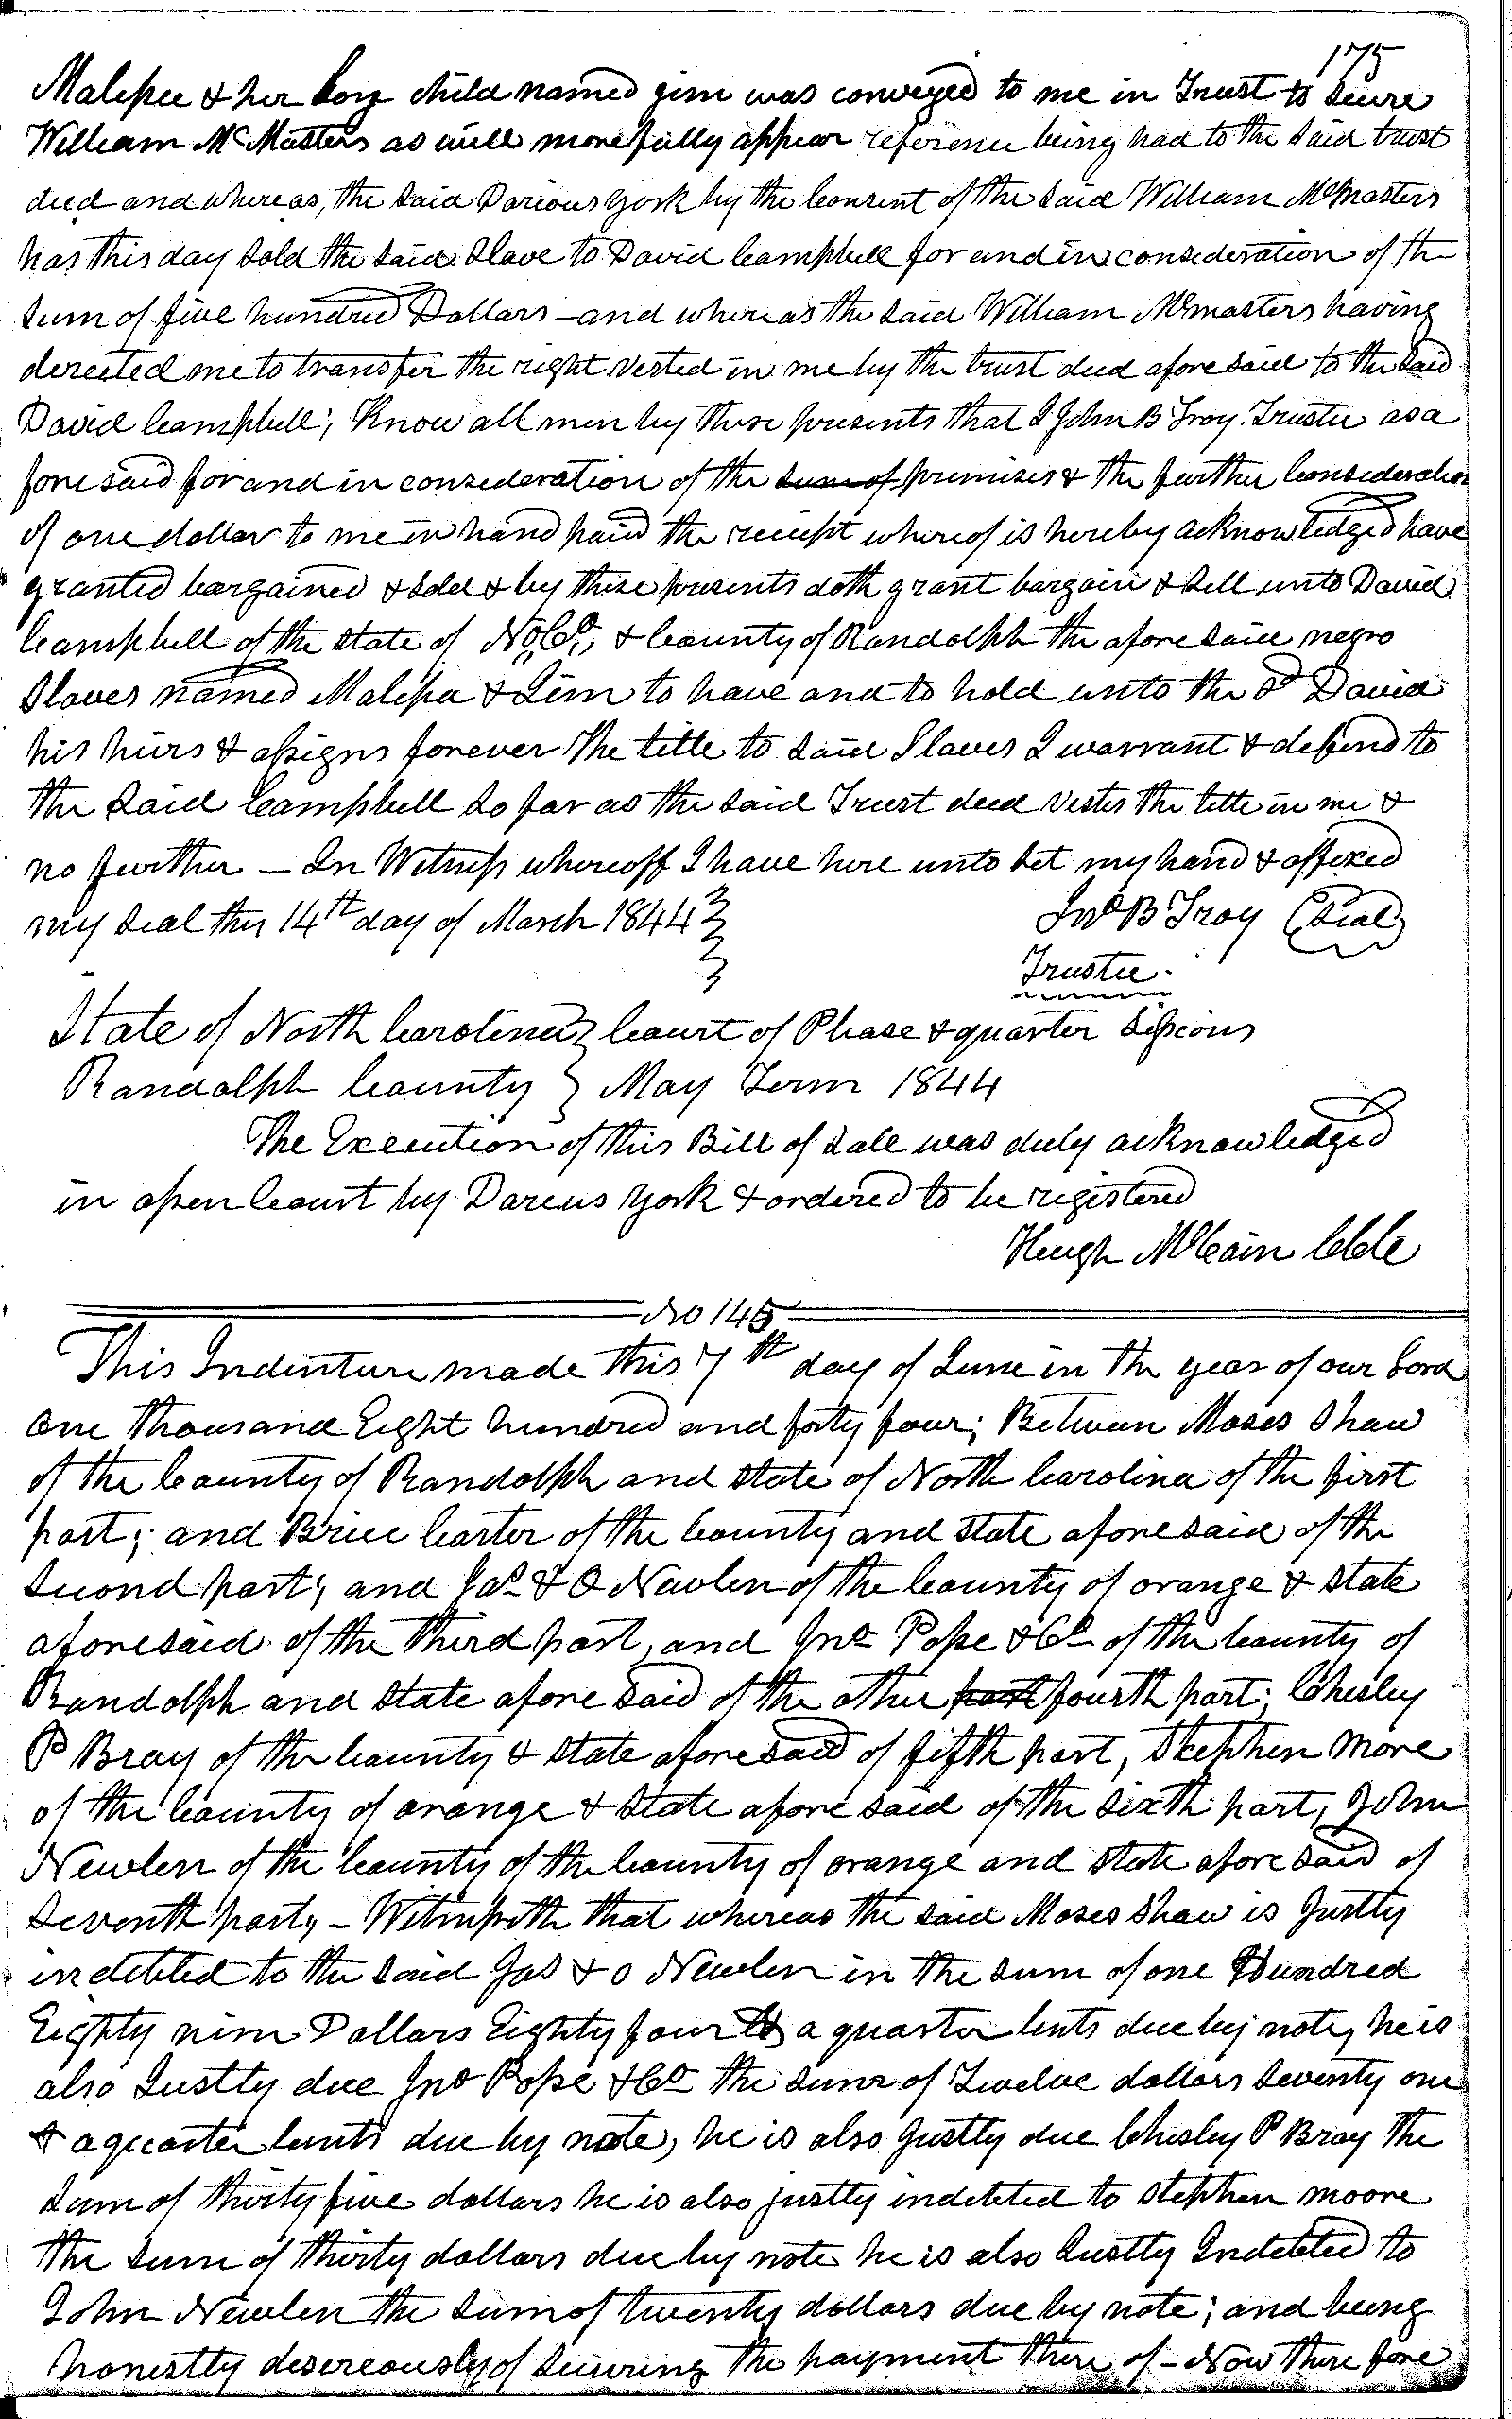 175
Malissee & her boy child named jim was conveyed to me in Trust to Secure
William McMasters as will more fully appear reference being had to the said trust
deed and whereas, the said Darious york by the Consent of the said William McMasters
has this day sold the said Slave to David Campbell for and in consideration of the
sum of five hundred Dollars – and whereas the said William McMasters having
derected me to transfer the right vested in me by the trust deed afore said to the said
David Campbell; Know all men by these presents that I John B Troy Trustee as a
fore said for and in consideration of the sum of premises & the further Consideration
of one dollar to me in hand paid the receipt whereof is hereby acknowledged have
granted bargained & sold & by these presents doth grant bargain & sell unto David
Campbell of the State of No Ca, & County of Randolph the afore said negro
Slaves named Malissa & Jim to have and to hold unto the sd David
his heirs & assigns forever The title to said Slaves I warrant & defend to
the said Campbell so far as the said Trust deed vestes the title in me &
no further – In Witness whereoff I have here unto set my hand & affixed
my seal this 14th day of March 1844 Jno B Troy (Seal)
Trustee.
State of North Carolina } Court of Please & quarter Sessions
Randolph County } May Term 1844
The Execution of this Bill of Sale was duly acknowledged
in open Court by Dareus york & ordered to be registered
Hugh McCain Clk
No 145
This Indenture made this 7th day of June in the year of our Lord
One thousand Eight hundred and forty four; Between Moses Shaw
of the County of Randolph and State of North Carolina of the first
part; and Brice Carter of the County and State aforesaid of the
Second part; and Jas & O Newlen of the County of orange & State
aforesaid of the third part, and Jno Pope & Co of the County of
Randolph and State afore said of the other part fourth part; Chesley
P Bray of the County & State aforesaid of fifth part, Stephen More
of the County of orange & State afore said of the Sixth part, John
Newlen of the County of the County of orange and State afore said of
Seventh part, – Witnesseth that whereas the said Moses Shaw is Justly
indebted to the said Jas & O Newlen in the sum of one Hundred
Eighty nine Dollars Eighty four & a quarter Cents due by note, he is
also Justly due Jno Pope & Co the sum of Twelve dollars Seventy one
& a quarter Cents due by note, he is also Justly due Chesley P Bray the
sum of thirty five dollars he is also justly indebted to Stephen moore
the sum of thirty dollars due by note he is also Justly Indebted to
John Newlen the sum of twenty dollars due by note; and being
honestly desereously of Securing the payment there of – Now there fore